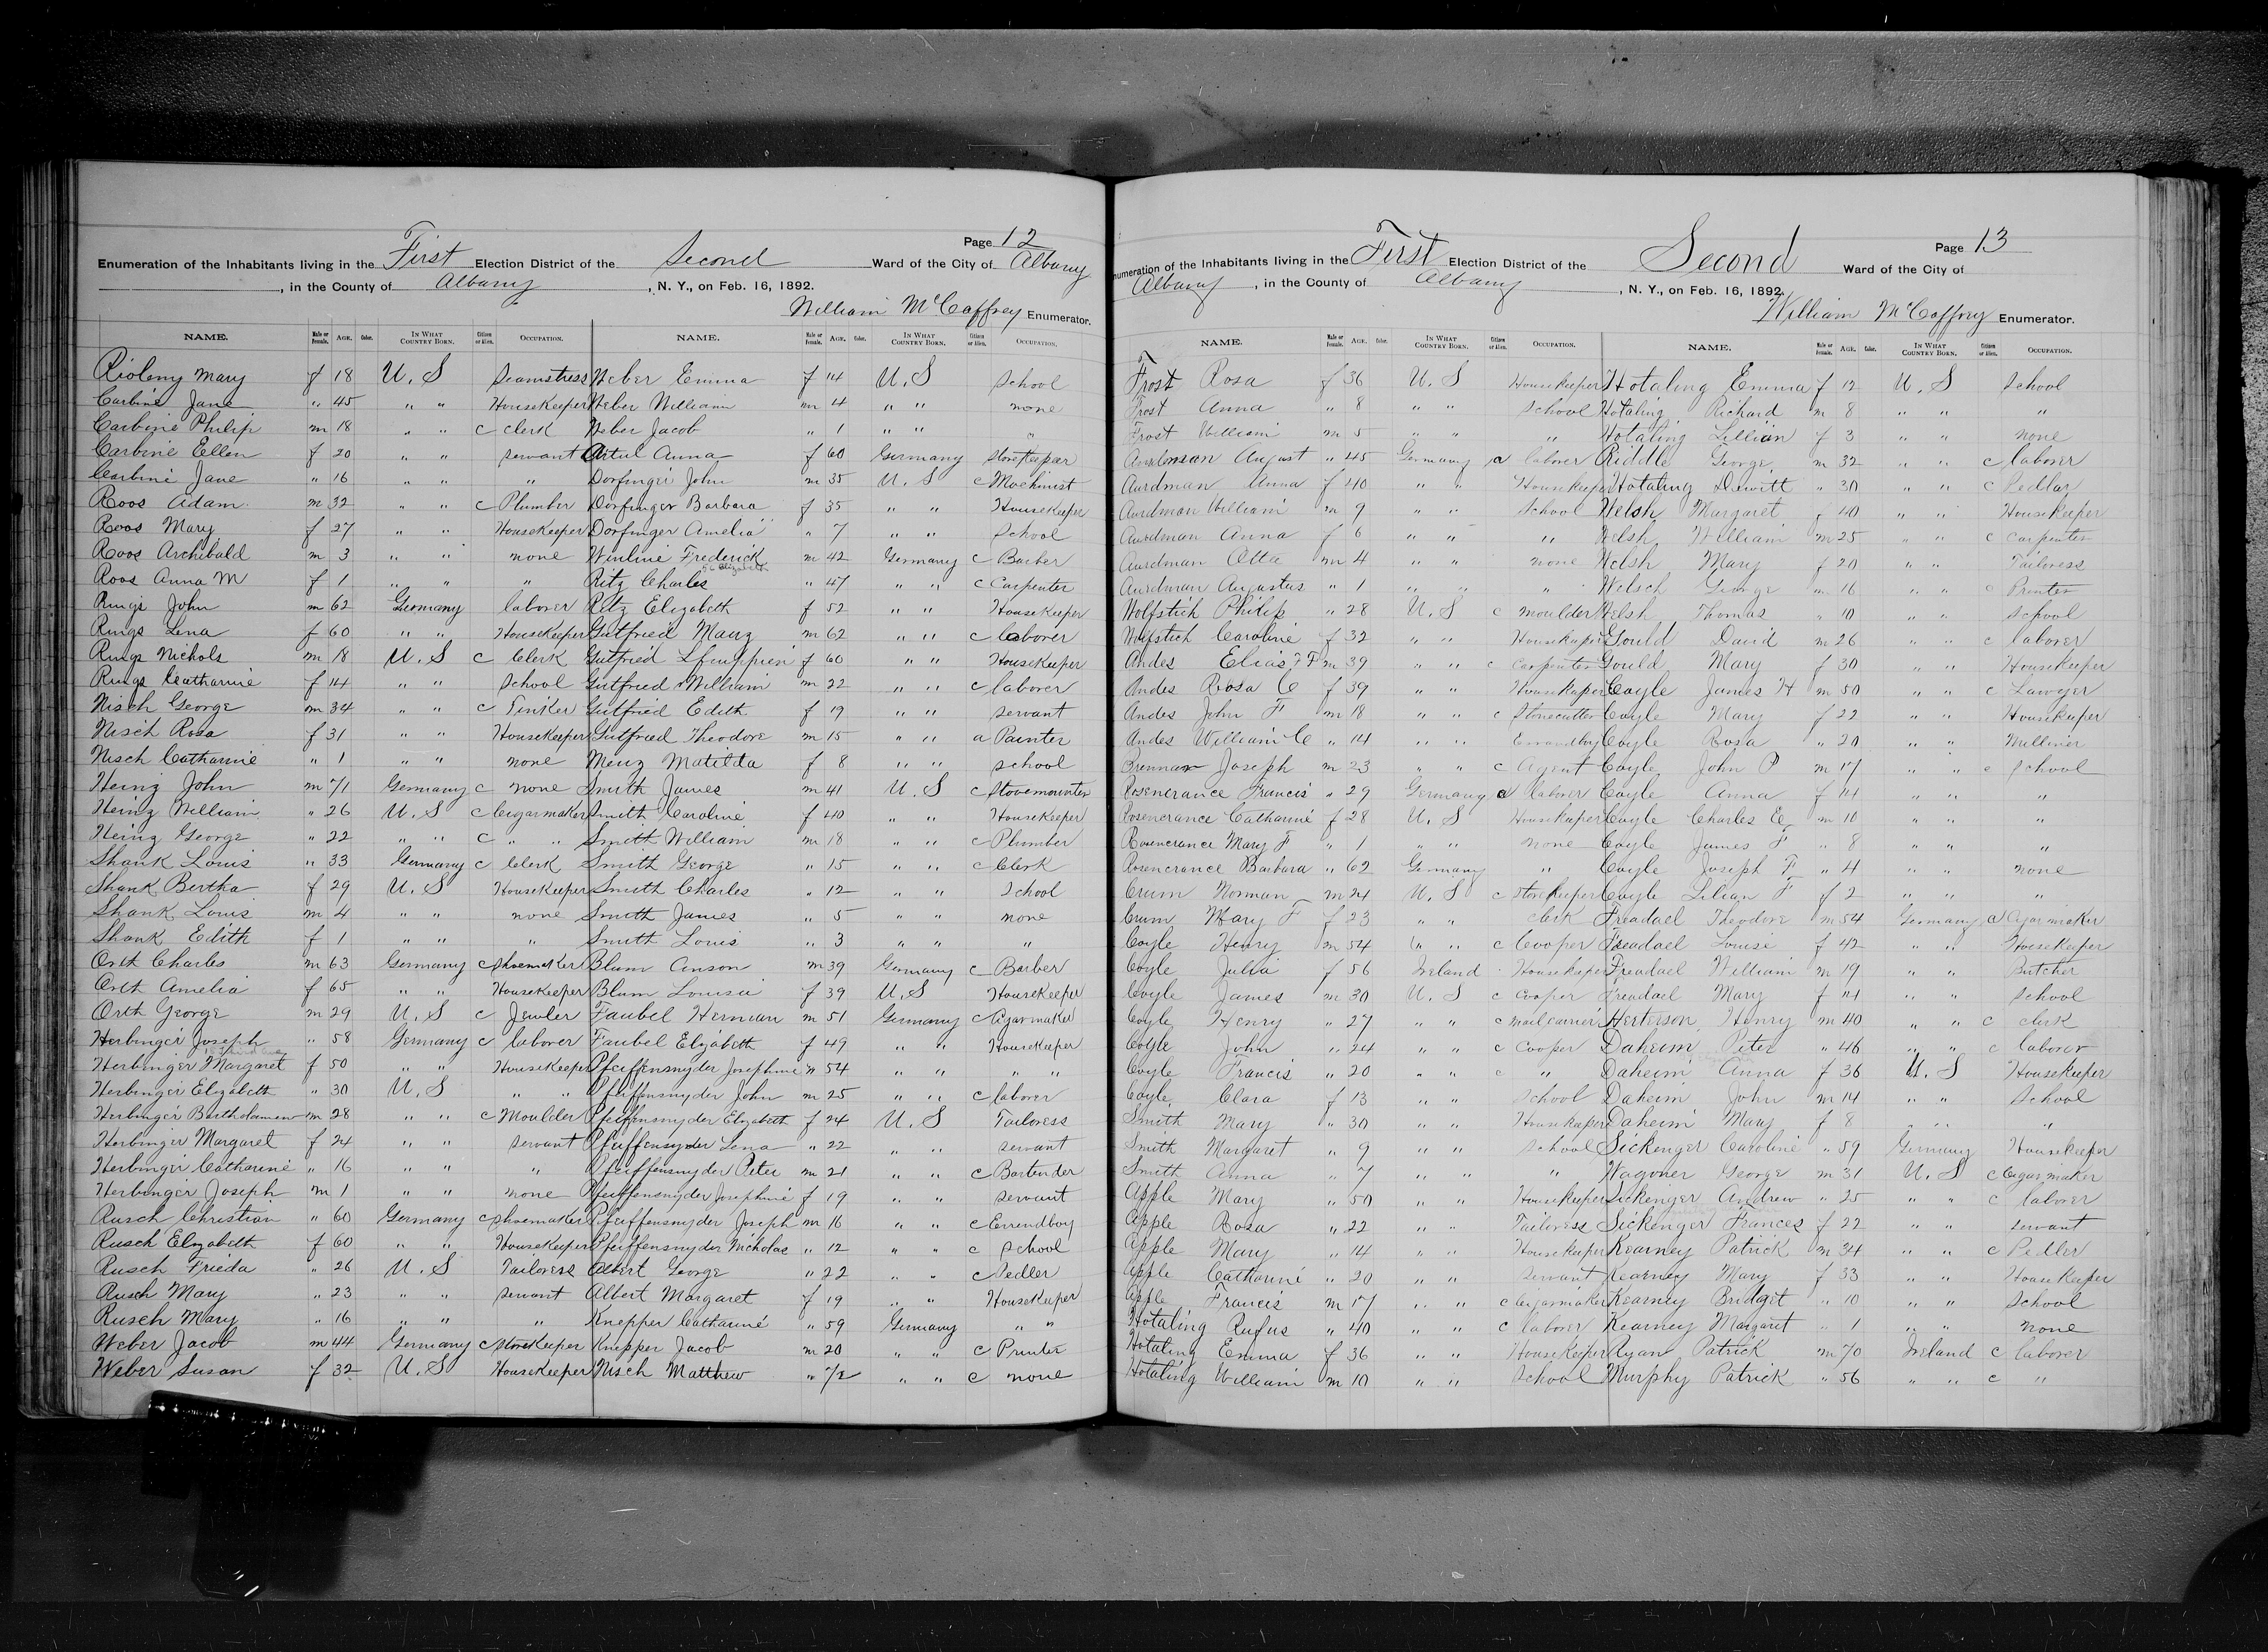 Page 12
Enumeration of the Inhabitants living in the First Election District of the Second Ward of the City of Albany
, in the County of Albany , N. Y., on Feb. 16, 1892.
William McCaffrey Enumerator.
NAME. Male or Female. AGE. Color. IN WHAT COUNTRY BORN. Citizen or Alien. OCCUPATION. NAME. Male or Female. AGE. Color. IN WHAT COUNTRY BORN. Citizen or Alien. OCCUPATION.
Mary f 18 U. S Seamstress
Carbine Jane " 45 " " HouseKeeper
Carbine Philip m 18 " " c clerk
Carbine Ellen f 20 " " servant
Carbine Jane " 16 " " "
Roos Adam m 32 " " c Plumber
Roos Mary f 27 " " HouseKeeper
Roos Archibald m 3 " " none
Roos Anna M f 1 " " "
Rings John m 62 Germany laborer
Rings Lena f 60 " " HouseKeeper
Rings Nichols m 18 U. S c Clerk
Rings Catharine f 14 " " School
Nisch George m 34 " " c Tinker
Nisch Rosa f 31 " " HouseKeeper
Nisch Catharine " 1 " " none
Heinz John m 71 Germany c none
Heinz William " 26 U. S c Cigarmaker
Heinz George " 22 " " c " "
Shank Louis " 33 Germany c Clerk
Shank Bertha f 29 U. S HouseKeeper
Shank Louis m 4 " " none
Shank Edith f 1 " " "
Orth Charles m 63 Germany c Shoemaker
Orth Amelia f 65 " " HouseKeeper
Orth George m 29 U. S c Jewler
Herbinger Joseph " 58 Germany c laborer
Herbinger Margaret f 50 " " HouseKeeper
Herbinger Elizabeth " 30 U. S " "
Herbinger Bartholamew m 28 " " c Moulder
Herbinger Margaret f 24 " " servant
Herbinger Catharine " 16 " " "
Herbinger Joseph m 1 " " none
Rusch Christian " 60 Germany c Shoemaker
Rusch Elizabeth f 60 " " HouseKeeper
Rusch Frieda " 26 U. S Tailoress
Rusch Mary " 23 " " servant
Rusch Mary " 16 " " "
Weber Jacob m 44 Germany c StoreKeeper
Weber Susan f 32 U. S HouseKeeper
Weber Emma f 14 U. S School
Weber William m 4 " " none
Weber Jacob " 1 " " "
Anna f 60 Germany StoreKeeper
Dorfinger John m 35 U. S c Machinist
Dorfinger Barbara f 35 " " HouseKeeper
Dorfinger Amelia " 7 " " School
Frederick m 42 Germany c Barber
Ritz Charles " 47 " " c Carpenter
Ritz Elizabeth f 52 " " HouseKeeper
Gutfried Mauz m 62 " " c laborer
Gutfried f 60 " " HouseKeeper
Gutfried William m 22 " " c laborer
Gutfried Edith f 19 " " servant
Gutfried Theodore m 15 " " a Painter
Menz Matilda f 8 " " school
Smith James m 41 U. S c Stovemounter
Smith Caroline f 40 " " HouseKeeper
Smith William m 18 " " c Plumber
Smith George " 15 " " c Clerk
Smith Charles " 12 " " School
Smith James " 5 " " none
Smith Louis " 3 " " "
Blum Anson m 39 Germany c Barber
Blum Louisa f 39 U. S HouseKeeper
Faubel Herman m 51 Germany c Cigarmaker
Faubel Elizabeth f 49 " " HouseKeeper
Pfeiffensnyder Josephine " 54 " " " "
Pfeiffensnyder John m 25 " " c laborer
Pfeiffensnyder Elizabeth f 24 U. S Tailoress
Pfeiffensnyder Lena " 22 " " servant
Pfeiffensnyder Peter m 21 " " c Bartender
Pfeiffensnyder Josephine f 19 " " servant
Pfeiffensnyder Joseph m 16 " " c Errendboy
Pfeiffensnyder Nicholas " 12 " " c School
Albert George " 22 " " c Pedler
Albert Margaret f 19 " " HouseKeeper
Knepper Catharine " 59 Germany " "
Knepper Jacob m 20 " " c Printer
Nisch Matthew " 72 " " c none
Page 13
Enumeration of the Inhabitants living in the First Election District of the Second Ward of the City of
Albany , in the County of Albany , N. Y., on Feb. 16, 1892.
William McCaffrey Enumerator.
NAME. Male or Female. AGE. Color. IN WHAT COUNTRY BORN. Citizen or Alien. OCCUPATION. NAME. Male or Female. AGE. Color. IN WHAT COUNTRY BORN. Citizen or Alien. OCCUPATION.
Frost Rosa f 36 U. S Housekeeper
Frost Anna " 8 " " School
Frost William m 5 " " "
Aurdman August " 45 Germany a laborer
Aurdman Anna f 40 " " Housekeeper
Aurdman William m 9 " " School
Aurdman Anna f 6 " " "
Aurdman Otta m 4 " " none
Aurdman Augustus " 1 " " "
Wolfstich Philip " 28 U. S c moulder
Wolfstich Caroline f 32 " " Housekeeper
Andes Elias F m 39 " " c Carpenter
Andes Rosa C f 39 " " Housekeeper
Andes John F m 18 " " c Stonecutter
Andes William C " 14 " " Errandboy
Brennan Joseph m 23 " " c Agent
Rosencrance Francis " 29 Germany a laborer
Rosencrance Catharine f 28 U. S Housekeeper
Rosencrance Mary F " 1 " " none
Rosencrance Barbara " 62 Germany "
Crum Norman m 24 U. S c Storekeeper
Crum Mary F f 23 " " clerk
Coyle Henry m 54 " " c Cooper
Coyle Julia f 56 Ireland Housekeeper
Coyle James m 30 U. S c Cooper
Coyle Henry " 27 " " c mail carrier
Coyle John " 24 " " c Cooper
Coyle Francis " 20 " " c "
Coyle Clara f 13 " " School
Smith Mary " 30 " " Housekeeper
Smith Margaret " 9 " " School
Smith Anna " 7 " " "
Apple Mary " 50 " " Housekeeper
Apple Rosa " 22 " " Tailoress
Apple Mary " 14 " " Housekeeper
Apple Catharine " 20 " " servant
Apple Francis m 17 " " c Cigarmaker
Hotaling Rufus " 40 " " c laborer
Hotaling Emma f 36 " " HouseKeeper
Hotaling William m 10 " " School
Hotaling Emma f 12 U. S School
Hotaling Richard m 8 " " "
Hotaling Lillian f 3 " " none
Riddle George m 32 " " c laborer
Hotaling Dewitt " 30 " " c Pedlar
Welsh Margaret f 40 " " Housekeeper
Welsh William m 25 " " c carpenter
Welsh Mary f 20 " " Tailoress
Welsch George m 16 " " c Printer
Welsh Thomas " 10 " " School
Gould David m 26 " " c laborer
Gould Mary f 30 " " Housekeeper
Coyle James H m 50 " " c Lawyer
Coyle Mary f 22 " " Housekeeper
Coyle Rosa " 20 " " Milliner
Coyle John P m 17 " " c School
Coyle Anna f 14 " " "
Coyle Charles E m 10 " " "
Coyle James F " 8 " " "
Coyle Joseph F " 4 " " none
Coyle Lilian F f 2 " " "
Freadael Theodore m 54 Germany a Cigarmaker
Freadael Louise f 42 " " Housekeeper
Freadael William m 19 " " Butcher
Freadael Mary f 14 " " School
Herterson Henry m 40 " " c clerk
Daheim Peter " 46 " " c laborer
Daheim Anna f 36 U. S Housekeeper
Daheim John m 14 " " School
Daheim Mary f 8 " " "
Sickenger Caroline " 59 Germany Housekeeper
Wagoner George m 31 U. S c Cigarmaker
Sickenger Andrew " 25 " " c laborer
Sickenger Frances f 22 " " servant
Kearney Patrick m 34 " " c Pedler
Kearney Mary f 33 " " HouseKeeper
Kearney Bridget " 10 " " School
Kearney Margaret " 1 " " none
Ryan Patrick m 70 Ireland c laborer
Murphy Patrick " 56 " " c "